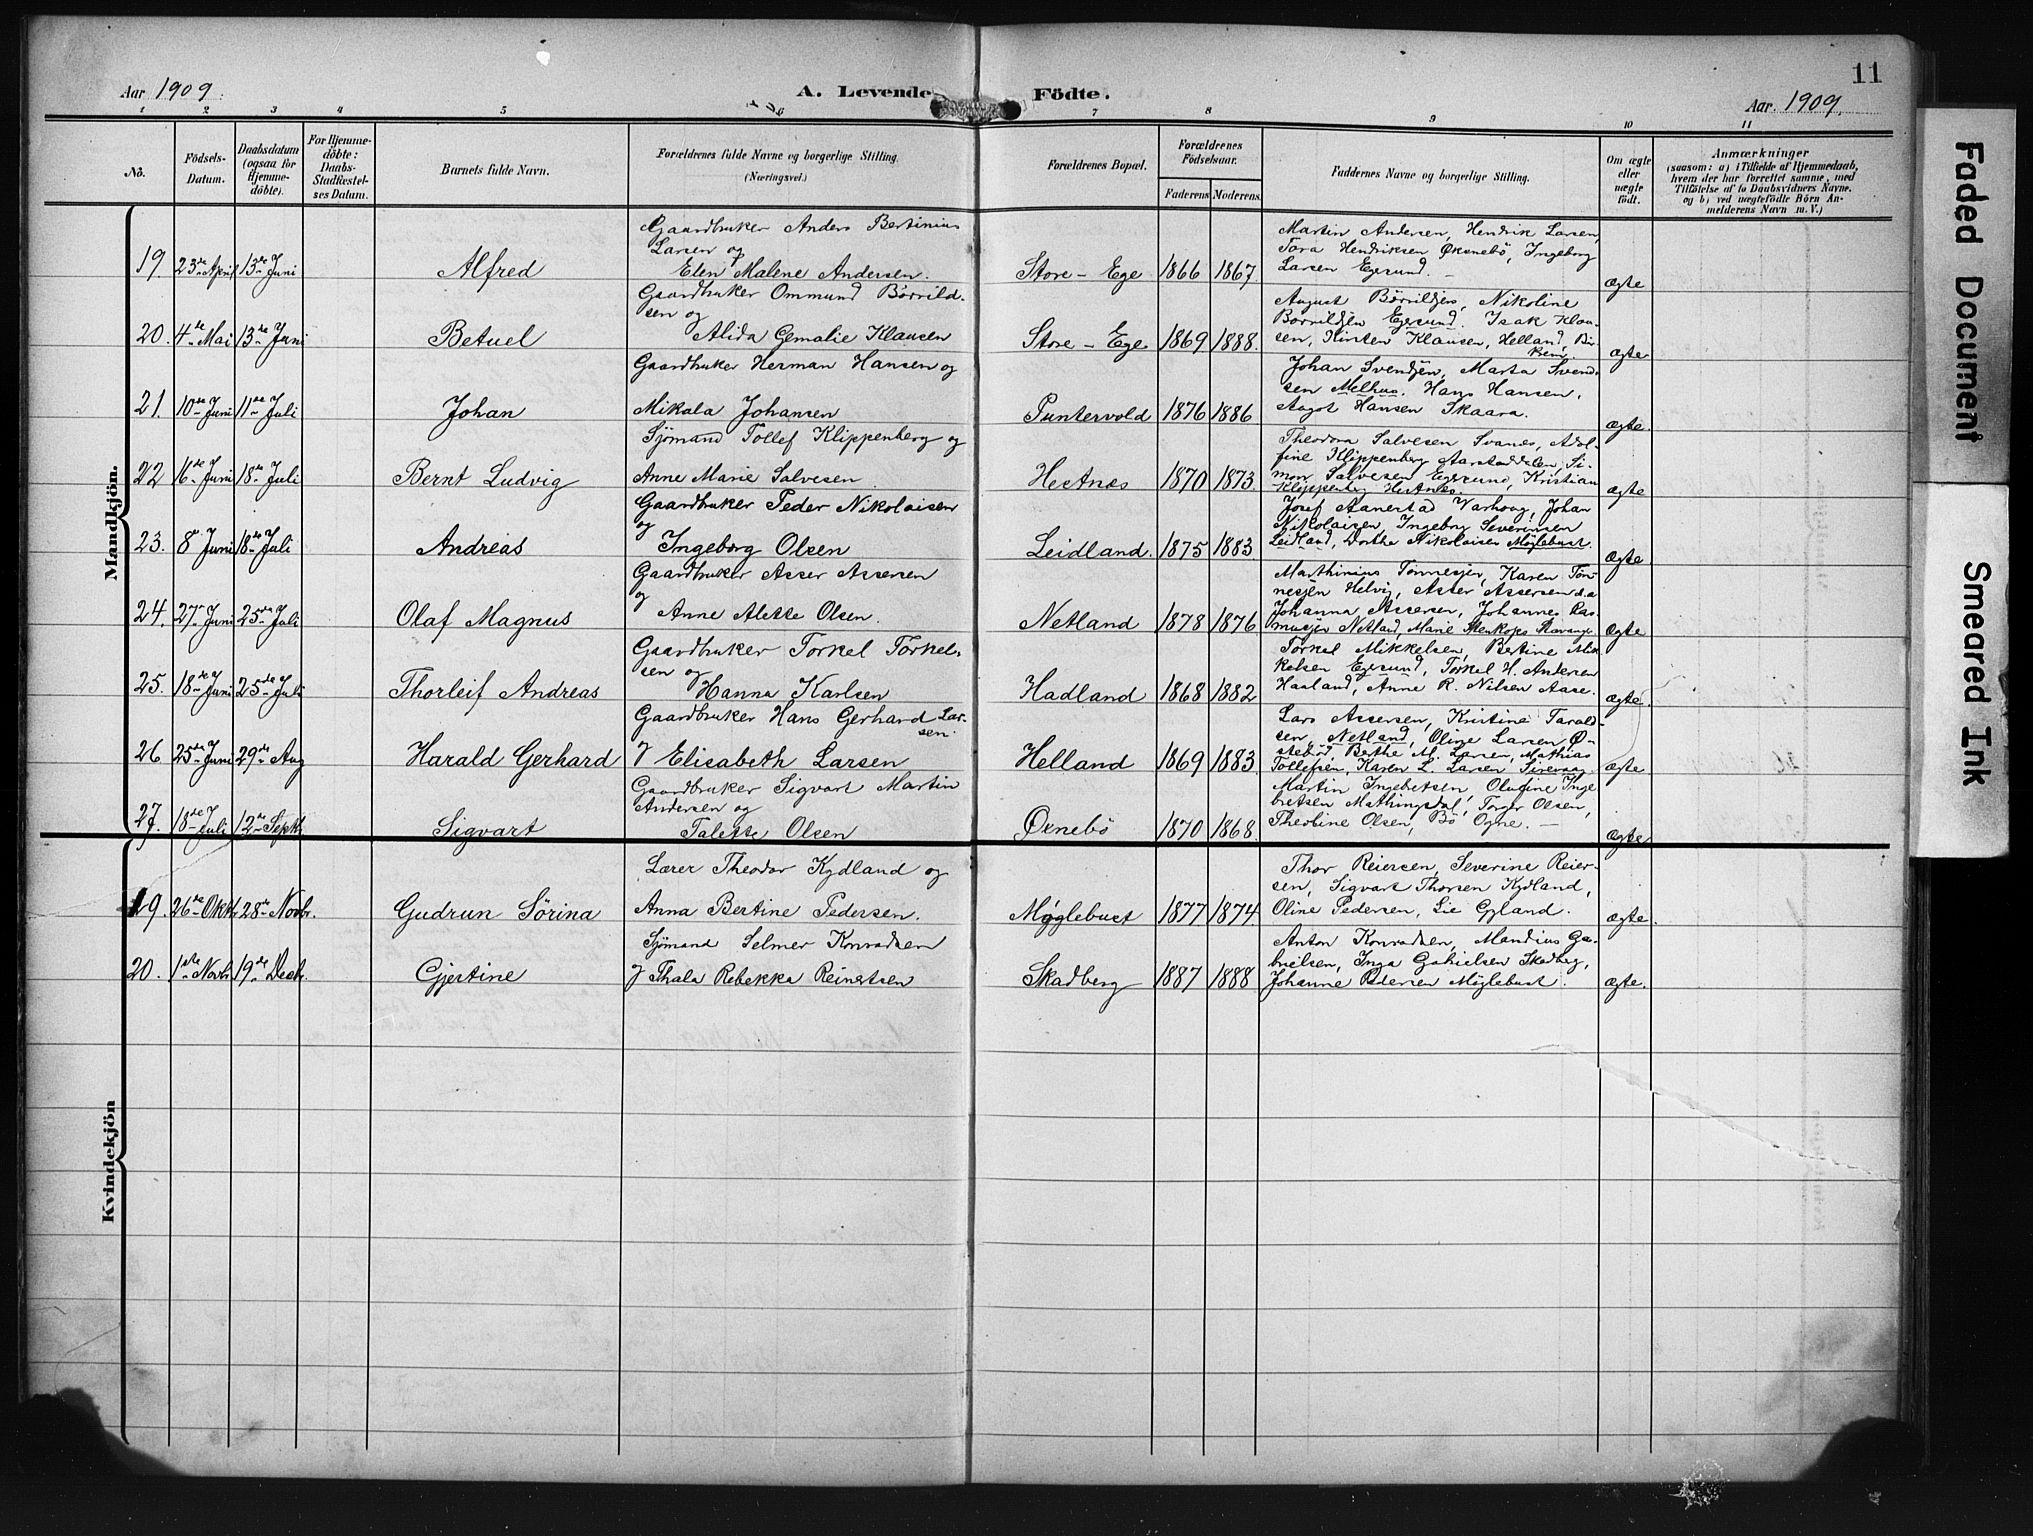 11
Aar 1909.
A. Levende
Födte.
Aar. 1909.
1 2 3 4 5 6 7 8 9 10 11
No.
Födsels-
Datum.
Daabsdatum
(ogsaa for
Hjemme-
döbte).
For Hjemme-
döbte:
Daabs-
Stadfestel-
ses Datum.
Barnets fulde Navn.
Forældrenes fulde Navne og borgerlige Stilling.
(Næringsvei.)
Forældrenes Bopæl.
Forældrenes
Födselsaar.
Faderens Moderens.
Faddernes Navne og borgerlige Stilling.
Om ægte
eller
uægte
födt.
Anmærkninger
(saasom: a) i Tilfælde af Hjemmedaab,
hvem der har forrettet samme, med
Tilföielse af to Daabsvidners Navne.
og b) ved uægtefödte Börn An-
melderens Navn m. V.)
Mandkjön.
19. 23de April 13de Juni
Alfred
Gaardbruker Anders Bertinius
Larsen og
Elen Malene Andersen.
Store - Ege
1866 1867.
Martin Andersen, Hendrik Larsen,
Tora Hendriksen Øksnebö, Ingeborg
Larsen Egersund. -
ægte
20. 4de Mai 13de Juni
Betuel
Gaardbruker Ommund Börrild-
sen og
Alida Gemalie Klausen
Store - Ege
1869 1888.
August Börrildsen, Nikoline
Börrildsen Egersund. Isak Klau-
sen, Kirsten Klausen, Helland, Bir-
krem.
ægte
21. 10de Juni 11te Juli
Johan
Gaardbruker Herman Hansen og
Mikala Johansen
Puntervold
1876 1886
Johan Svendsen, Marta Svend-
sen Melhus. Hans Hansen,
Aagot Hansen Skaara.
ægte.
22 16de Juni 18de Juli
Bernt Ludvig
Sjömand Tollef Klippenberg og
Anne Marie Salvesen
Hestnes
1870 1873.
Theodora Salvesen Svanes, Adol-
fine Klippenberg Aarstaddalen, Si-
mon Salvesen Egersund, Kristian
Klippenberg Hestnes.
ægte
23. 8de Juni 18de Juli
Andreas
Gaardbruker Peder Nikolaisen
og
Ingeborg Olsen
Leidland.
1875 1883
Josef Aanestad Varhoug, Johan
Nikolaisen, Ingeborg Severinsen
Leidland, Dorthe Nikolaisen Møglebust.
ægte.
24. 27de Juni 25de Juli
Olaf Magnus
Gaardbruker Asser Assersen
og
Anne Alette Olsen.
Netland
1878 1876
Marthinius Tönnesjen, Karen Tön-
nesjen Helvig, Asser Assersen d.a
Johanna Assersen, Johannes Ras-
musjen Netland, Marie Stavanger
ægte
25. 18de Juni 25de Juli
Thorleif Andreas
Gaardbruker Torkel Torkel-
sen og
Hanna Karlsen
Hadland
1868 1882
Torkel Mikkelsen, Bertine Mik-
kelsen Egersund, Torkel H. Andersen
Haaland, Anne R. Nilsen Aase.
ægte.
26 25de Juni 29de Aug
Harald Gerhard
Gaardbruker Hans Gerhard Lar-
sen.
& Elisabeth Larsen
Helland
1869 1883.
Lars Assersen, Kristine Tarald-
sen, Netland, Oline Larsen Ø-
stebød, Berthe M. Larsen, Mathias
Tollefsen, Karen L. Larsen Sirevaag.
ægte
27. 18de Juli 12te Septb.
Sigvart
Gaardbruker Sigvart Martin
Andersen og
Talette Olsen
Øxnebö
1870 1868.
Martin Ingebretsen, Olufine Inge-
bretsen Mathingsdal, Torger Olsen,
Theoline Olsen, Bö Ogne. -
ægte
Kvindekjön
19. 26de Oktbr. 28de Novbr.
Gudrun Sörina
Lærer Theodor Kydland og
Anna Bertine Pedersen.
Møglebust
1877 1874.
Thor Reiersen, Severine Reier-
sen, Sigvart Thorsen Kydland,
Oline Pedersen, Lie Gyland.
ægte.
20. 1ste Novbr. 19de Decbr.
Gjertine
Sjömand Selmer Konradsen
& Thala Rebekka Reinertsen
Skadberg
1887 1888
Anton Konradsen, Mandius Ga-
brielsen, Inga Gabrielsen Skadberg,
Johanne Pedersen Møglebust.
ægte.
Faded Document
Smeared Ink